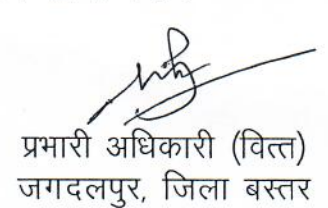 प्रभारी अधिकारी (वित्त)
जगदलपुर, जिला बस्तर